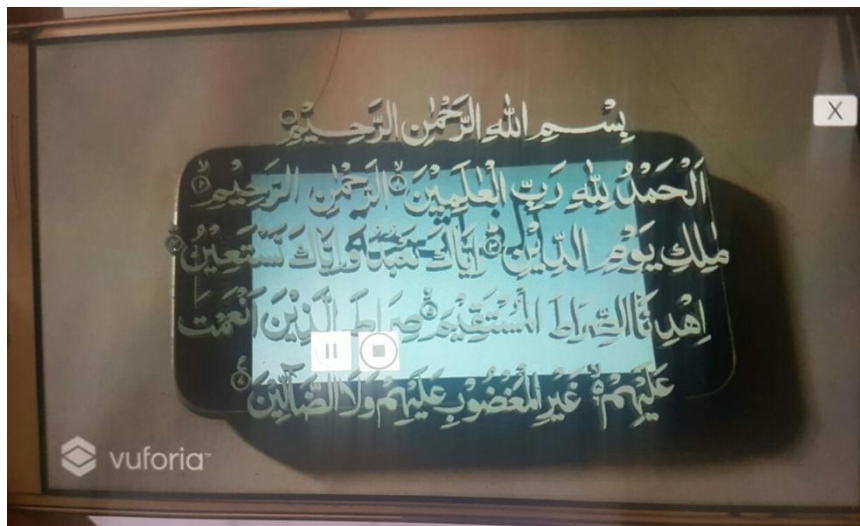 بِسْمِ اللهِ الرَّحْمٰنِ الرَّحِيْمِ
X
اَلْحَمْدُ لِلّٰهِ رَبِّ الْعٰلَمِيْنَ الرَّحْمٰنِ الرَّحِيْمِ
مٰلِكِ يَوْمِ الدِّيْنِ اِيَّاكَ نَعْبُدُ وَاِيَّاكَ نَسْتَعِيْنُ
اِهْدِنَا الصِّرَاطَ الْمُسْتَقِيْمَ صِرَاطَ الَّذِيْنَ اَنْعَمْتَ
عَلَيْهِمْ غَيْرِ الْمَغْضُوْبِ عَلَيْهِمْ وَلَا الضَّآلِّيْنَ
vuforia™